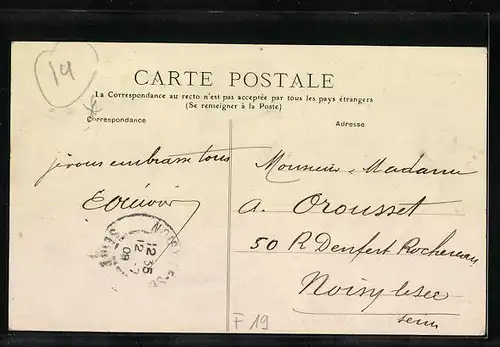 14
CARTE POSTALE
La Correspondance au recto n'est pas acceptée par tous les pays étrangers
(Se renseigner à la Poste)
Correspondance
Adresse
je vous embrasse tous
Monsieur Madame
A. Orousset
50 R Denfert Rochereau
Noisy le Sec
Seine
NOISY-LE-SEC
12 35
12
09
SEINE
F 19